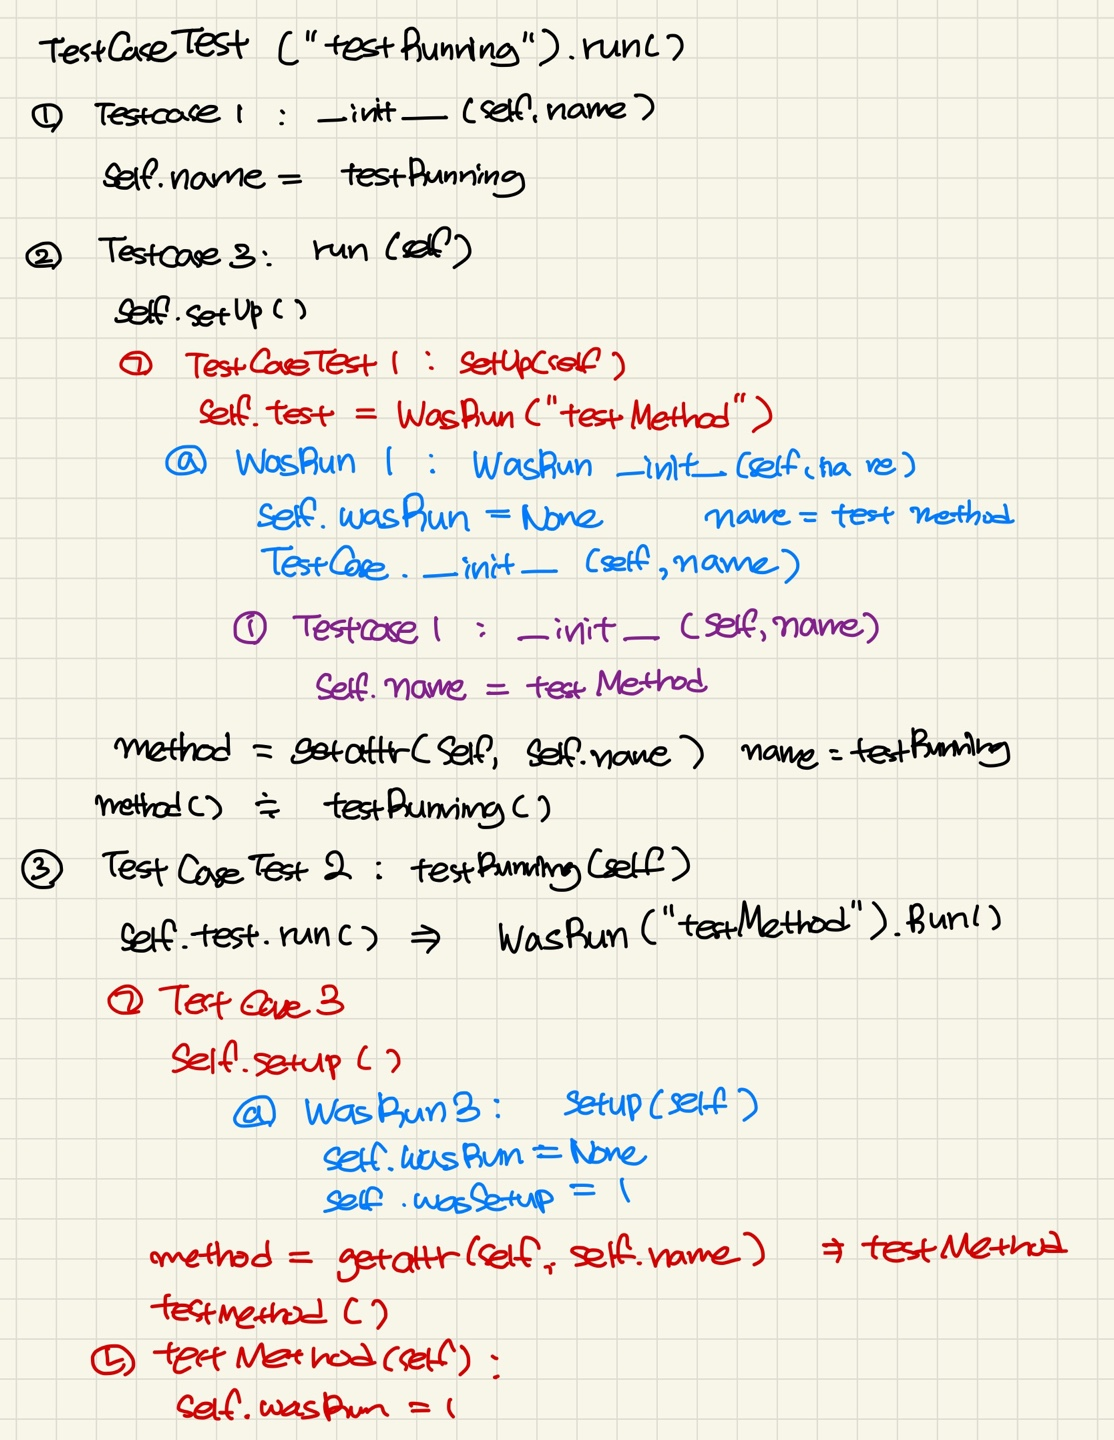 TestCaseTest ("testRunning").run()
① Testcase 1 : __init__ (self, name)
self.name = testRunning
② TestCase 3: run (self)
self.setUp()
㉠ TestCaseTest 1 : setUp(self)
self.test = WasRun ("testMethod")
ⓐ WasRun 1 : WasRun __init__ (self, name)
self.wasRun = None name = test method
TestCase.__init__ (self, name)
ⓘ Testcase 1 : __init__ (self, name)
self.name = testMethod
method = getattr(self, self.name) name = testRunning
method() ≒ testRunning()
③ TestCaseTest 2 : testRunning(self)
self.test.run() ⇒ WasRun ("testMethod").Run()
㉠ TestCase 3
self.setup()
ⓐ WasRun 3 : setup(self)
self.wasRun = None
self.wasSetup = 1
method = getattr(self, self.name) ⇒ testMethod
testmethod ()
㉡ testMethod(self) :
self.wasRun = 1